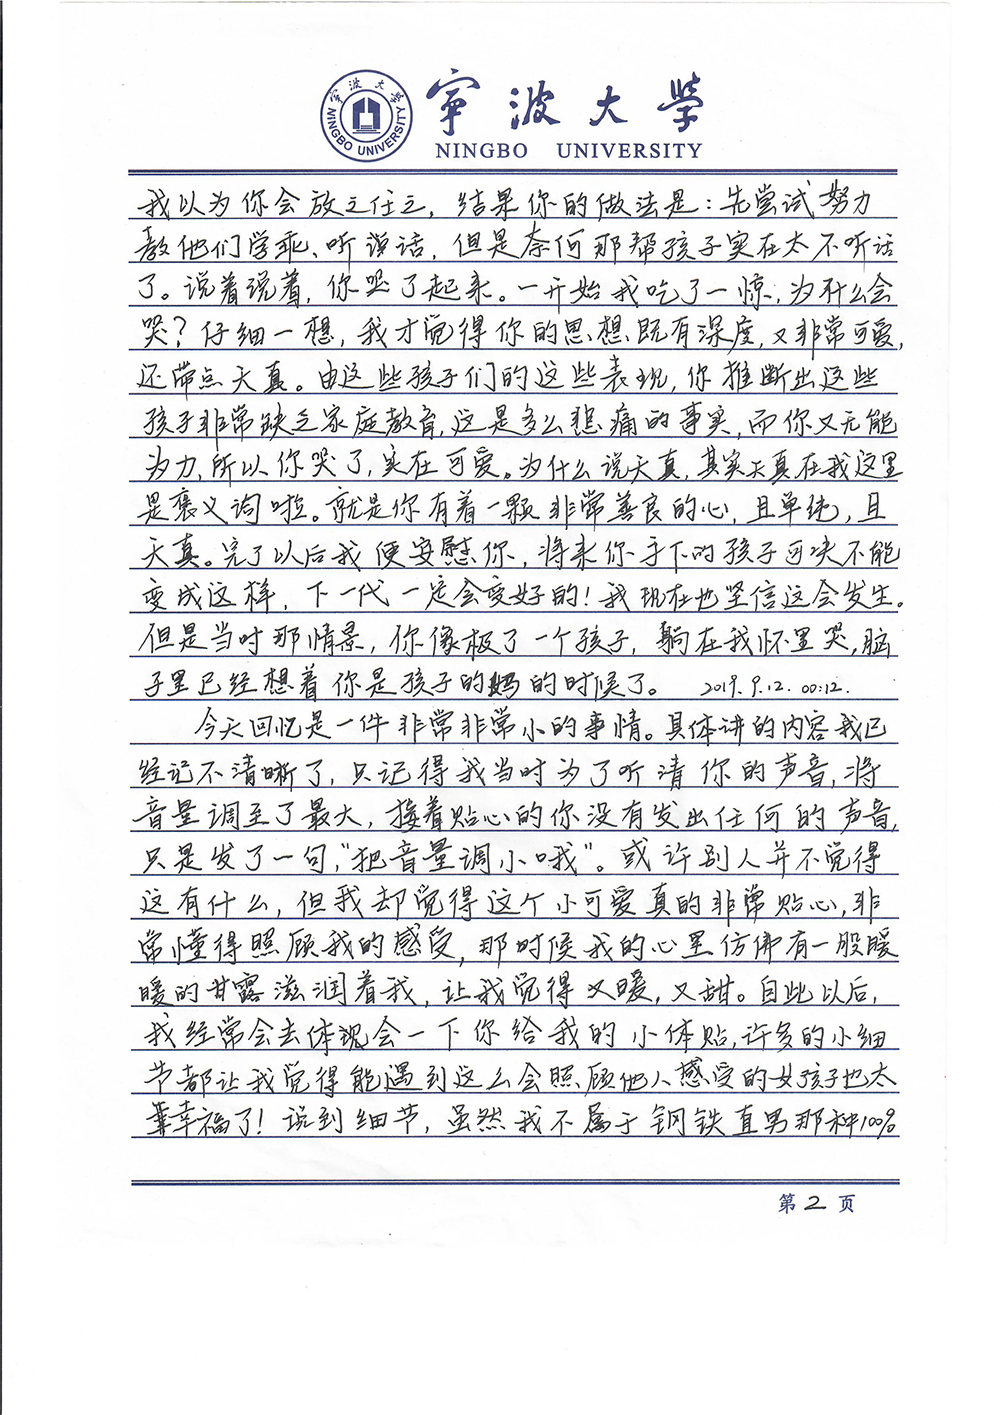 宁波大学
NINGBO UNIVERSITY
宁波大学
NINGBO UNIVERSITY
我以为你会放之任之，结果你的做法是：先尝试努力
教他们学乖、听说话，但是奈何那帮孩子实在太不听话
了。说着说着，你哭了起来。一开始我吃了一惊，为什么会
哭？仔细一想，我才觉得你的思想既有深度，又非常可爱，
还带点天真。由这些孩子们的这些表现，你推断出这些
孩子非常缺乏家庭教育，这是多么悲痛的事实，而你又无能
为力，所以你哭了，实在可爱。为什么说天真，其实天真在我这里
是褒义词啦。就是你有着一颗非常善良的心，且单纯，且
天真。完了以后我便安慰你，将来你手下的孩子可决不能
变成这样，下一代一定会变好的！我现在也坚信这会发生。
但是当时那情景，你像极了一个孩子，躺在我怀里哭，脑
子里已经想着你是孩子的妈的时候了。 2019.9.12. 00:12.
今天回忆是一件非常非常小的事情。具体讲的内容我已
经记不清晰了，只记得我当时为了听清你的声音，将
音量调至了最大，接着贴心的你没有发出任何的声音，
只是发了一句，“把音量调小哦”。或许别人并不觉得
这有什么，但我却觉得这个小可爱真的非常贴心，非
常懂得照顾我的感受，那时候我的心里仿佛有一股暖
暖的甘露滋润着我，让我觉得又暖，又甜。自此以后，
我经常会去体现会一下你给我的小体贴，许多的小细
节都让我觉得能遇到这么会照顾他人感受的女孩子也太
幸福了！说到细节，虽然我不属于钢铁直男那种100%
第2页